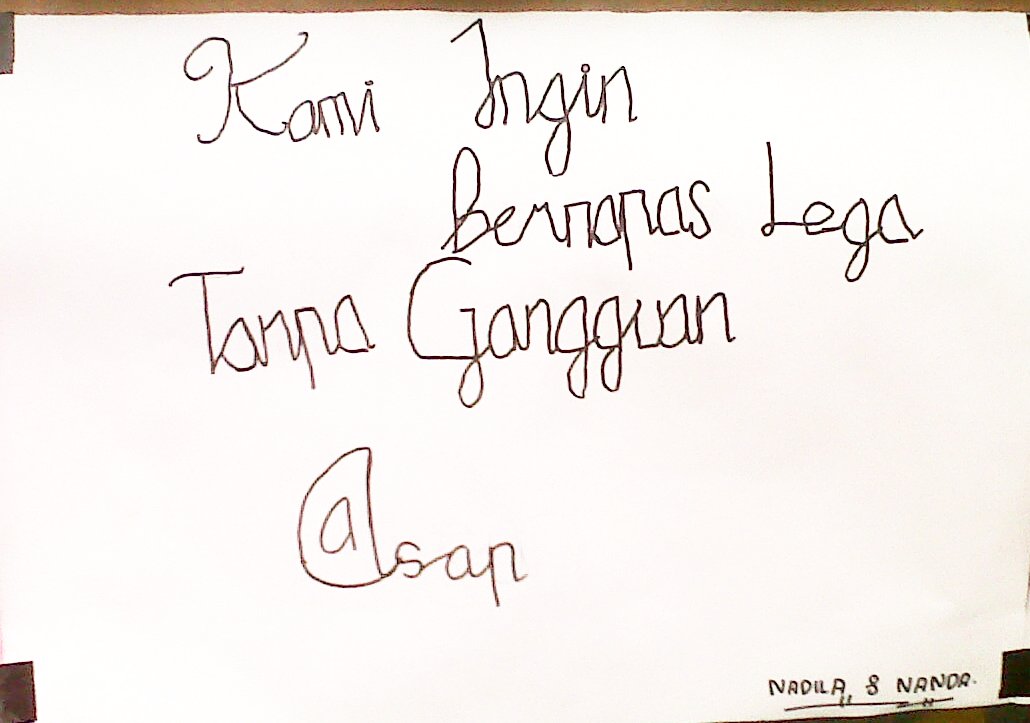 Kami Ingin
Bernapas Lega
Tanpa Gangguan
Asap
NADILA, & NANDA.